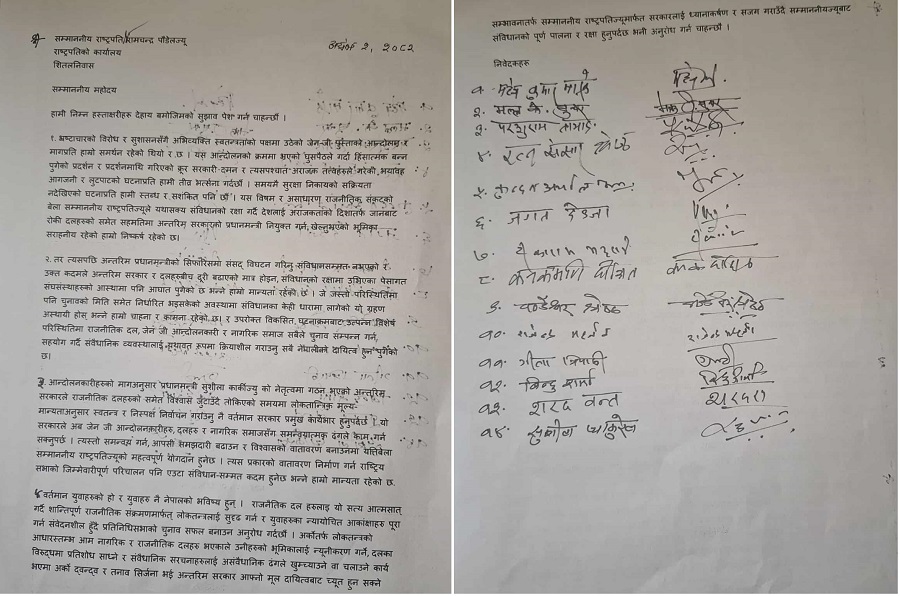 सम्माननीय राष्ट्रपति रामचन्द्र पौडेलज्यू
राष्ट्रपतिको कार्यालय
शितलनिवास
असोज २, २०८२
सम्माननीय महोदय
हामी निम्न हस्ताक्षरीहरू देहाय बमोजिमको सुझाव पेश गर्न चाहन्छौं ।
१. भ्रष्टाचारको विरोध र सुशासनसँगै अभिव्यक्ति स्वतन्त्रताको पक्षमा उठेको जेन-जी पुस्ताको आन्दोलन र
मागप्रति हाम्रो समर्थन रहेको थियो र छ । यस आन्दोलनको क्रममा भएको घुसपैठले गर्दा हिंसात्मक बन्न
पुगेको प्रदर्शन र प्रदर्शनमाथि गरिएको क्रूर सरकारी-दमन र त्यसपश्चात अराजक तत्वहरुले गरेकी, भयावह
आगजनी र लुटपाटको घटनाप्रति हामी तीव्र भर्त्सना गर्दछौं । समयमै सुरक्षा निकायको सक्रियता
नदेखिएको घटनाप्रति हामी स्तब्ध र सशंकित पनि छौं । यस विषम र असाधारण राजनीतिक संकटको
बेला सम्माननीय राष्ट्रपतिज्यूले यथासक्य संविधानको रक्षा गर्दै देशलाई अराजकताको दिशातर्फ जानबाट
रोकी दलहरुको समेत सहमतिमा अन्तरिम सरकारको प्रधानमन्त्री नियुक्त गर्न, खेल्नुभएको भूमिका
सराहनीय रहेको हाम्रो निष्कर्ष रहेको छ।
२. तर त्यसपछि अन्तरिम प्रधानमन्त्रीको सिफारिसमा संसद् विघटन गरिनु संविधानसम्मत नभएको र
उक्त कदमले अन्तरिम सरकार र दलहरुबीच दूरी बढाएको मात्र होइन, संविधानको रक्षामा उभिएका पेसागत
संघसंस्थाहरुको आस्थामा पनि आघात पुगेको छ भन्ने हाम्रो मान्यता रहेको छ । जे जस्तो परिस्थितिमा
पनि चुनावको मिति समेत निर्धारित भइसकेको अवस्थामा संविधानका केही धारामा लागेको यो ग्रहण
अस्थायी होस् भन्ने हामो चाहना र कामना रहेको छ। र उपरोक्त विकसित, घटनाक्रमबाट उत्पन्न विशेष
परिस्थितिमा राजनीतिक दल, जेन जी आन्दोलनकारी र नागरिक समाज सबैले चुनाव सम्पन्न गर्न,
सहयोग गर्दै संवैधानिक व्यवस्थालाई यथावत रूपमा क्रियाशील गराउनु सबै नेपालीको दायित्व हुन पुगेको
छ।
३. आन्दोलनकारीहरुको मागअनुसार प्रधानमन्त्री सुशीला कार्कीज्यू को नेतृत्वमा गठन भएको अन्तरिम
सरकारले राजनीतिक दलहरुको समेत विश्वास जुटाउँदै तोकिएको समयमा लोकतान्त्रिक मूल्य-
मान्यताअनुसार स्वतन्त्र र निष्पक्ष निर्वाचन गराउनु नै वर्तमान सरकार प्रमुख कार्यभार हुनुपर्दछ । यो
सरकारले अब जेन जी आन्दोलनकारी, दलहरु र नागरिक समाजसँग समन्वयात्मक ढंगले काम गर्न
सक्नुपर्छ । त्यस्तो समन्वय गर्न, आपसी समझदारी बढाउन र विश्वासको वातावरण बनाउनमा यतिबेला
सम्माननीय राष्ट्रपतिज्यूको महत्वपूर्ण योगदान हुनेछ । त्यस प्रकारको वातावरण निर्माण गर्न राष्ट्रिय
सभाको जिम्मेवारीपूर्ण परिचालन पनि एउटा संविधान-सम्मत कदम हुनेछ भन्ने हाम्रो मान्यता रहेको छ.
४ वर्तमान युवाहरुको हो र युवाहरु नै नेपालको भविष्य हुन् । राजनैतिक दल हरुलाइ यो सत्य आत्मसात्
गर्दै शान्तिपूर्ण राजनीतिक संक्रमणमार्फत् लोकतन्त्रलाई सुदृढ गर्न र युवाहरुका न्यायोचित आकांक्षाहरु पूरा
गर्न संवेदनशील हुँदै प्रतिनिधिसभाको चुनाव सफल बनाउन अनुरोध गर्दछौं । अर्कोतर्फ लोकतन्त्रको
आधारस्तम्भ आम नागरिक र राजनीतिक दलहरु भएकाले उनीहरुको भूमिकालाई न्यूनीकरण गर्ने, दलका
विरुद्धमा प्रतिशोध साध्ने र संवैधानिक संरचनाहरुलाई असंवैधानिक ढंगले खुम्च्याउने वा चलाउने कार्य
भएमा अर्को द्वन्द्व र तनाव सिर्जना भई अन्तरिम सरकार आफ्नो मूल दायित्वबाट च्यूत हुन सक्ने
सम्भावनातर्फ सम्माननीय राष्ट्रपतिज्यूमार्फत सरकारलाई ध्यानाकर्षण र सजग गराउँदै सम्माननीयज्यूबाट
संविधानको पूर्ण पालना र रक्षा हुनुपर्दछ भनी अनुरोध गर्न चाहन्छौं ।
निवेदकहरु
१.
२. मल्ल के. सुन्दर
३. परशुराम तामाङ
४.
५.
६. जगत देउजा
७.
८. कनकमणि दीक्षित
९. श्रेष्ठ
१०. राजेन्द्र महर्जन
११. गीता त्रिपाठी
१२. बिन्दु शर्मा
१३. शरद वन्त
१४.